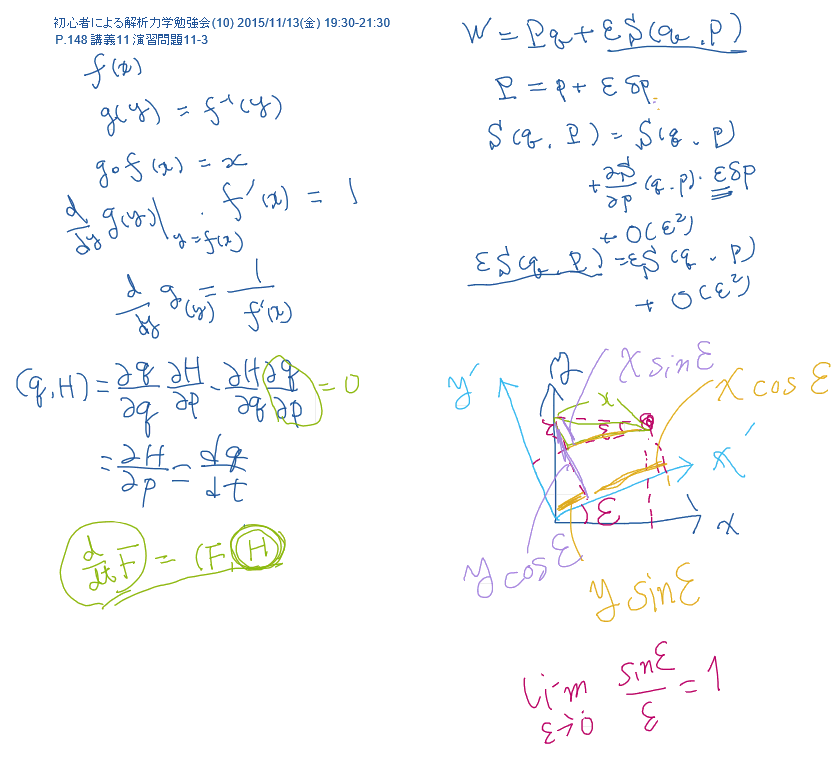 初心者による解析力学勉強会(10) 2015/11/13(金) 19:30-21:30
P.148 講義11 演習問題11-3
f(x)
g(y) = f⁻¹(y)
g∘f(x) = x
d/dy g(y)|_{y=f(x)} · f'(x) = 1
d/dy g(y) = 1/f'(x)
(q,H) = ∂q/∂q ∂H/∂p - ∂H/∂q ∂q/∂p = 0
= ∂H/∂p = dq/dt
d/dt F = (F, H)
W = Pq + εS(q,P)
P = p + εδp
S(q,P) = S(q,p)
+ ∂S/∂p (q,p)·εδp
+ O(ε²)
εS(q,P) = εS(q,p)
+ O(ε²)
y' y x sin ε
x x cos ε
ε
x'
ε x
y cos ε
y sin ε
lim_{ε→0} sin ε/ε = 1